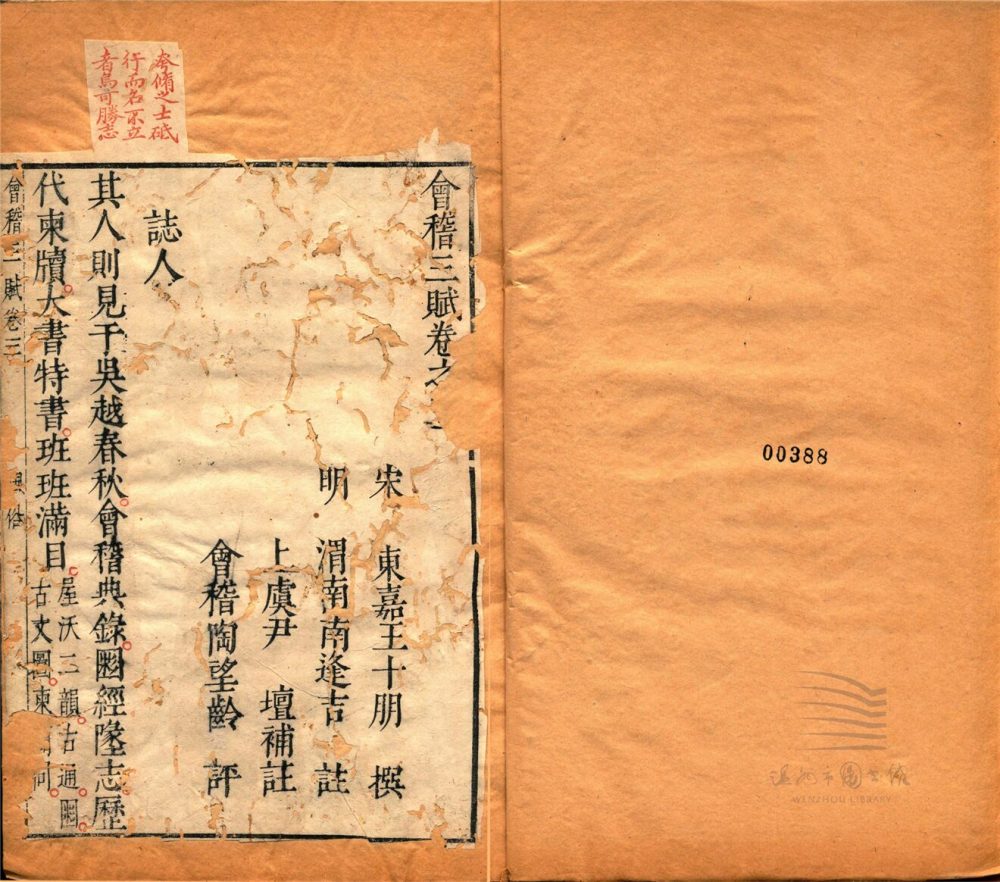 00388
WENZHOU LIBRARY
夸脩之士砥
行而名不立
者烏可勝志
會稽三賦卷之
宋 東嘉王十朋 撰
明 渭南南逢吉 註
上虞尹 壇補註
會稽陶望齡 評
誌人
其人則見于吳越春秋會稽典錄經墬志歷
代柬牘大書特書班班滿目
屋沃二韻古通
古文圖柬
會稽三賦卷三
俗